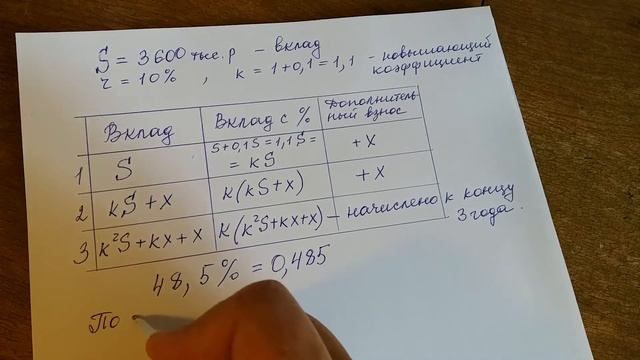 S = 3600 тыс. р – вклад
r = 10% , к = 1 + 0,1 = 1,1 – повышающий коэффициент
Вклад Вклад с % Дополнительный взнос
1 S S+0,1S=1,1S= = кS +x
2 кS+x к(кS+x) +x
3 к²S+кx+x к(к²S+кx+x) – начислено к концу 3 года.
48,5% = 0,485
По